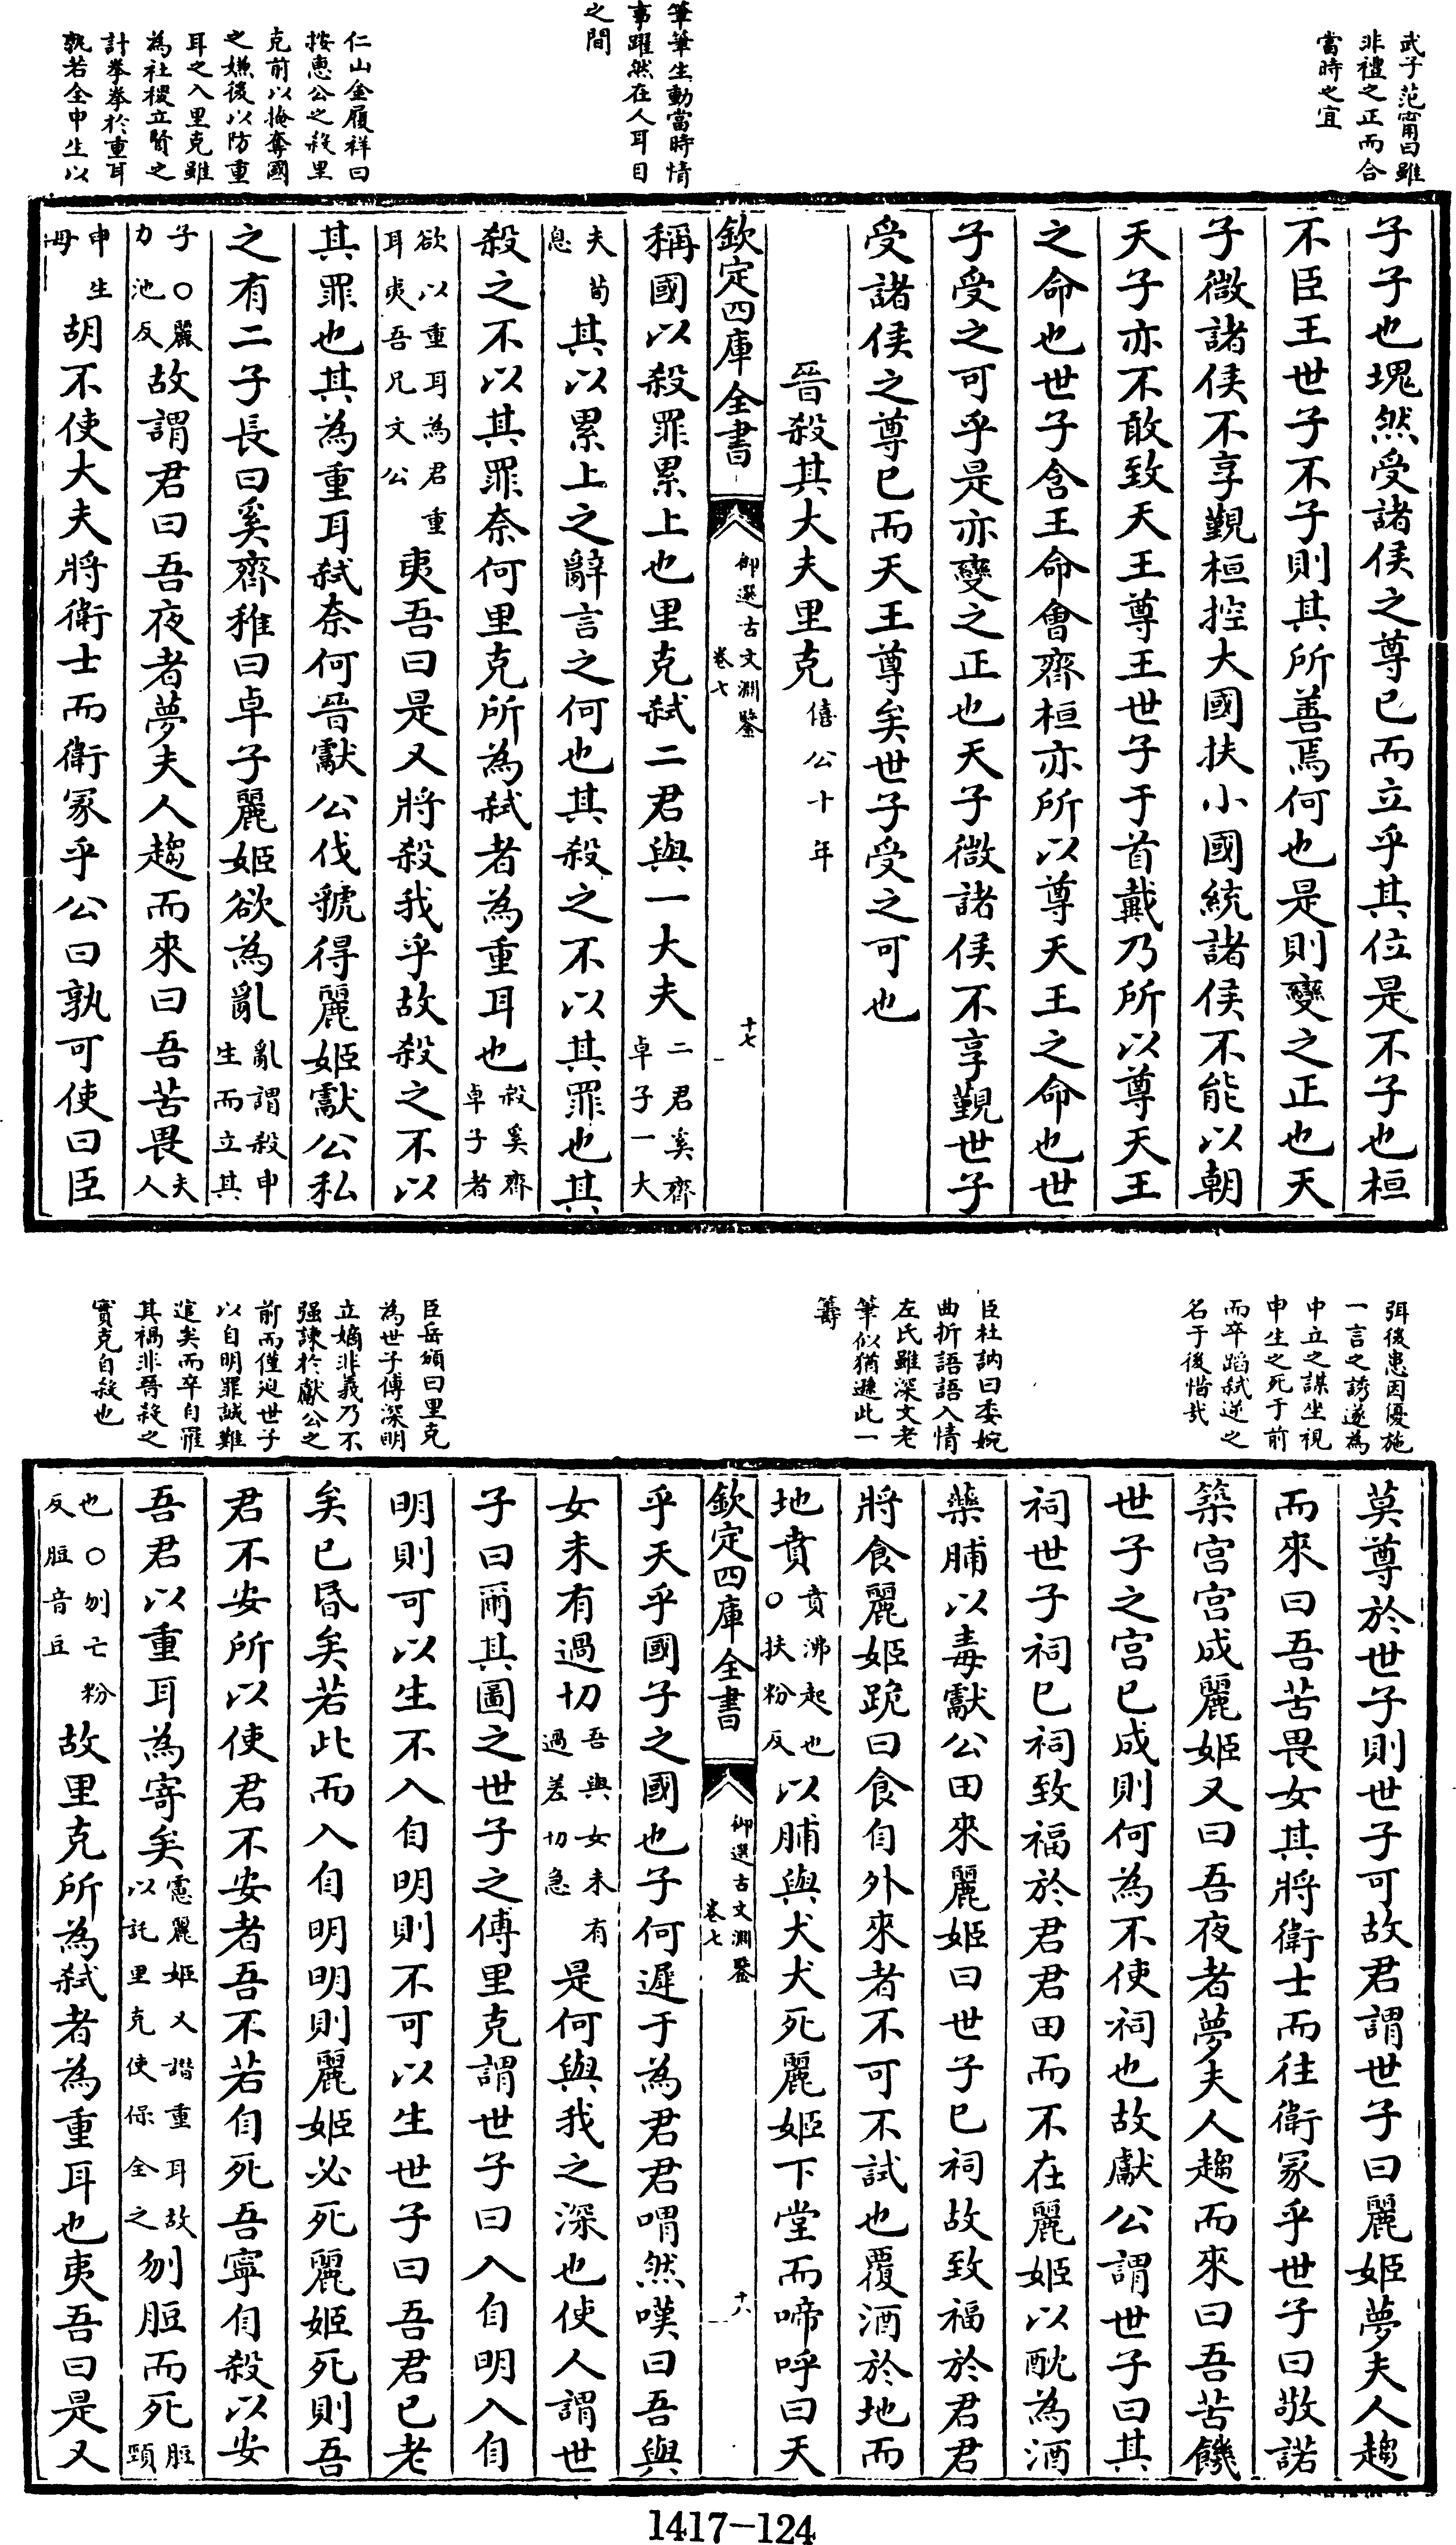 武子范甯曰雖
非禮之正而合
當時之宜
筆筆生動當時情
事躍然在人耳目
之間
仁山金履祥曰
按惠公之殺里
克前以掩奪國
之嫌後以防重
耳之入里克雖
為社稷立賢之
計拳拳於重耳
孰若全申生以
子子也塊然受諸侯之尊已而立乎其位是不子也桓
不臣王世子不子則其所善焉何也是則變之正也天
子微諸侯不享覲桓控大國扶小國統諸侯不能以朝
天子亦不敢致天王尊王世子于首戴乃所以尊天王
之命也世子含王命會齊桓亦所以尊天王之命也世
子受之可乎是亦變之正也天子微諸侯不享覲世子
受諸侯之尊已而天王尊矣世子受之可也
晉殺其大夫里克僖公十年
欽定四庫全書
御選古文淵鑒
卷七
十七
稱國以殺罪累上也里克弑二君與一大夫二君奚齊卓子一大
夫荀息其以累上之辭言之何也其殺之不以其罪也其
殺之不以其罪奈何里克所為弑者為重耳也殺奚齊卓子者
欲以重耳為君重耳夷吾兄文公夷吾曰是又將殺我乎故殺之不以
其罪也其為重耳弑奈何晉獻公伐虢得麗姬獻公私
之有二子長曰奚齊稚曰卓子麗姬欲為亂亂謂殺申生而立其
子○麗力池反故謂君曰吾夜者夢夫人趨而來曰吾苦畏夫人
申生母胡不使大夫將衛士而衛冢乎公曰孰可使曰臣
弭後患因優施
一言之誘遂為
中立之謀坐視
申生之死于前
而卒蹈弑逆之
名于後惜哉
臣杜訥曰委婉
曲折語語入情
左氏雖深文老
筆似猶遜此一
籌
臣岳頒曰里克
為世子傅深明
立嫡非義乃不
强諫於獻公之
前而僅迎世子
以自明罪誠難
逭矣而卒自罹
其禍非晉殺之
實克自殺也
莫尊於世子則世子可故君謂世子曰麗姬夢夫人趨
而來曰吾苦畏女其將衛士而往衛冢乎世子曰敬諾
築宫宫成麗姬又曰吾夜者夢夫人趨而來曰吾苦饑
世子之宫已成則何為不使祠也故獻公謂世子曰其
祠世子祠已祠致福於君君田而不在麗姬以酖為酒
藥脯以毒獻公田來麗姬曰世子已祠故致福於君君
將食麗姬跪曰食自外來者不可不試也覆酒於地而
地賁賁沸起也○扶粉反以脯與犬犬死麗姬下堂而啼呼曰天
欽定四庫全書
御選古文淵鑒
卷七
十八
乎天乎國子之國也子何遲于為君君喟然嘆曰吾與
女未有過切吾與女未有過差切急是何與我之深也使人謂世
子曰爾其圖之世子之傅里克謂世子曰入自明入自
明則可以生不入自明則不可以生世子曰吾君已老
矣已昏矣若此而入自明明則麗姬必死麗姬死則吾
君不安所以使君不安者吾不若自死吾寧自殺以安
吾君以重耳為寄矣慮麗姬又譖重耳故以託里克使保全之刎脰而死脰頸
也○刎亡粉反脰音豆故里克所為弑者為重耳也夷吾曰是又
1417-124